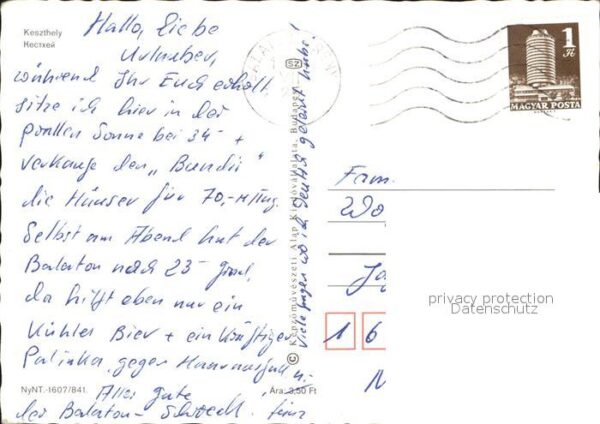 Keszthely
Кестхей
Hallo, liebe
Urlauber,
während Ihr Euch erholt
sitze ich hier in der
prallen Sonne bei 34° +
verkaufe den "Bundis"
die Häuser für 70,-
Selbst am Abend hat der
Balaton noch 23° Grad,
da hilft eben nur ein
kühles Bier + ein kräftiger
Palinka gegen Haarausfall
Alles Gute
der Balaton-
NyNT.-1607/841.
Ára: 3,50 Ft
© Képzőművészeti Alap Kiadóvállalata, Budapest
Viele fragen wo ich Deutsch gelernt habe!
SZ
1 Ft
MAGYAR POSTA
Fam.
Wo
Ja
1 6
N
privacy protection
Datenschutz